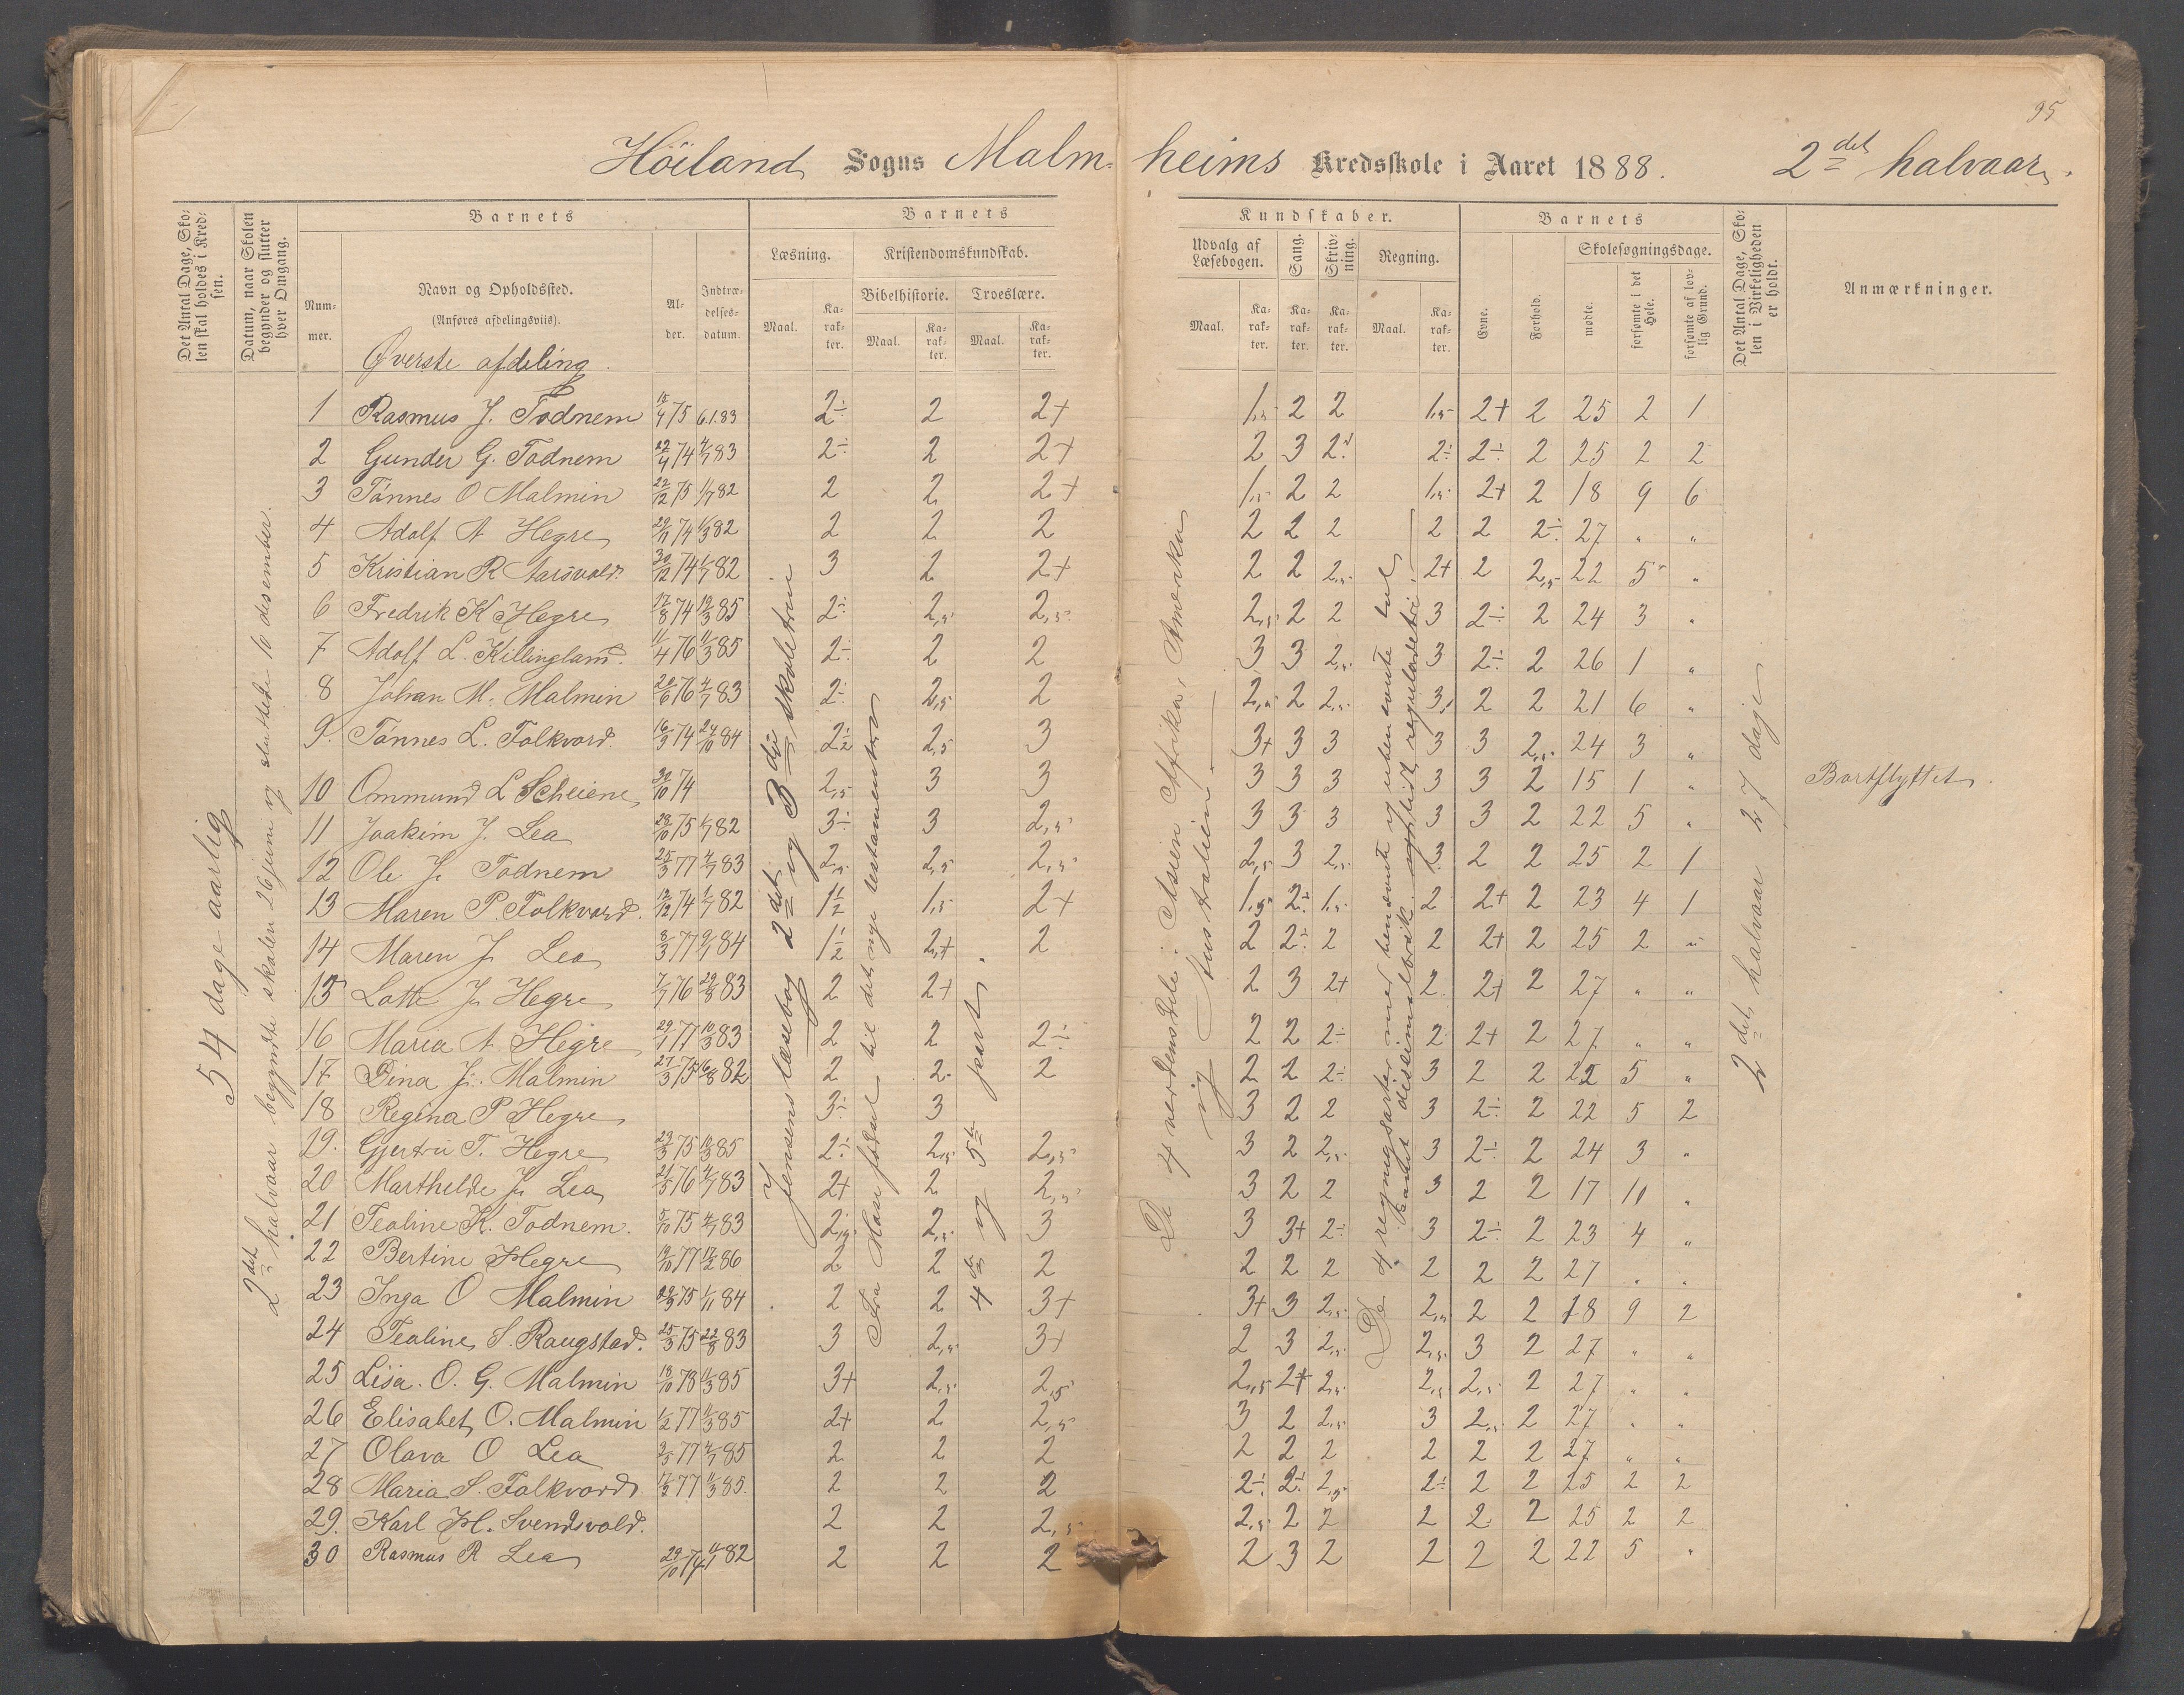 95
Höiland Sogns Malm- heims Kredsskole i Aaret 1888. 2det halvaar.
Det Antal Dage, Skolen skal holdes i Kredsen.
Datum, naar Skolen begynder og slutter hver Omgang.
Barnets
Nummer.
Navn og Opholdssted.
(Anføres afdelingsviis).
Alder.
Indtrædelsesdatum.
Barnets Kundskaber.
Læsning.
Maal.
Karakter.
Kristendomskundskab.
Bibelhistorie.
Maal.
Karakter.
Troeslære.
Maal.
Karakter.
Udvalg af Læsebogen.
Maal.
Karakter.
Sang.
Karakter.
Skrivning.
Karakter.
Regning.
Maal.
Karakter.
Barnets
Evne.
Forhold.
Skolesøgningsdage.
mødte.
forsømte i det Hele.
forsømte af lovlig Grund.
Det Antal Dage, Skolen i Virkeligheden er holdt.
Anmærkninger.
Øverste afdeling.
54 dage aarlig
2det halvaar begyndte skolen 26 juni og sluttede 10 desember.
Jensens læsebog 2det og 3die skoletrin
Fra Mose fødsel til det nye testamente
4de og 5te part.
De 4 verdensdele: Asien Afrika, Amerika
og Australien
De 4 regningsarter med benævnte og ubenævnte tal
2det halvaar 27 dage
1 Rasmus J. Todnem 15/4 75 6.1.83 2÷ 2 2+ 1,5 2 2 1,5 2+ 2 25 2 1
2 Gunder G. Todnem 22/4 74 4/7 83 2÷ 2 2+ 2 3 2÷ 2÷ 2÷ 2 25 2 2
3 Tönnes O Malmin 22/12 75 1/7 82 2 2 2+ 1,5 2 2 1,5 2+ 2 18 9 6
4 Adolf A Hegre 29/11 74 1/3 82 2 2 2 2 2 2 2 2 2÷ 27 " "
5 Kristian R Aarsvold. 30/12 74 1/7 82 3 2 2+ 2 2 2,5 2+ 2 2,5 22 5 "
6 Fredrik K Hegre 17/8 74 19/3 85 2÷ 2,5 2,5 2,5 2 2 3 2÷ 2 24 3 "
7 Adolf L. Killingland. 11/4 76 11/3 85 2÷ 2 2 3 3 2,5 3 2÷ 2 26 1 "
8 Johan M. Malmin 20/6 76 4/7 83 2÷ 2,5 2 2,5 2 2,5 3 2 2 21 6 "
9. Tönnes L. Folkvord. 16/3 74 24/10 84 2½ 2,5 3 3+ 3 3 3 3 2,5 24 3 "
10 Ommund L Scheiene 30/10 74 2,5 3 3 3 3 3 3 3 2 15 1 " Bortflyttet.
11 Joakim J. Lea 28/10 75 1/7 82 3÷ 3 2,5 3 3 3 3 3 2 22 5 "
12 Ole J. Todnem 25/3 77 4/7 83 2,5 2,5 2,5 2,5 3 2,5 3 2 2 25 2 1
13 Maren P. Folkvord. 12/12 74 1/7 82 1½ 1,5 2+ 1,5 2÷ 1,5 2 2+ 2 23 4 1
14 Maren J. Lea 8/3 77 9/7 84 1½ 2+ 2 2 2÷ 2 2 2+ 2 25 2 "
15 Lotte J. Hegre 7/7 76 29/8 83 2 2+ 2 3 2+ 2 2+ 2 27 " "
16 Maria A. Hegre 29/1 77 10/3 83 2 2 2÷ 2 2 2÷ 2 2+ 2 27 " "
17 Dina J. Malmin 27/3 75 16/8 82 2 2 2 2 2 2÷ 3 2 2 22 5 "
18 Regina P Hegre 3÷ 3 3 2 2 3 2÷ 2 22 5 2
19. Gjertru T. Hegre 23/3 75 19/3 85 2÷ 2,5 2,5 3 2 2,5 3 2÷ 2 24 3 "
20 Marthelde J. Lea 21/5 76 4/7 83 2+ 2 2,5 3 2 2 3 2 2 17 10 "
21 Tealine K. Todnem. 5/10 75 4/7 83 2,5 2,5 3 3 3+ 2÷ 3 2÷ 2 23 4 "
22 Bertine Hegre 19/10 77 17/2 86 2 2 2 2 2 2 2 2 2 27 " "
23 Inga O Malmin 29/3 75 1/11 84 2 2 3+ 3+ 3 2,5 2,5 2 2 18 9 2
24 Tealine S. Raugstad. 25/3 75 22/8 83 3 2,5 3+ 2 3 2,5 2,5 3 2 27 " "
25 Lisa. O. G. Malmin 18/10 78 11/3 85 3+ 2,5 2,5 2,5 2+ 2,5 2,5 2,5 2 27 " "
26 Elisabet O. Malmin 1/2 77 11/3 85 2+ 2 2,5 3 2 2,5 3 2,5 2 27 " "
27 Olava O Lea 2/5 77 4/7 85 2 2 2 2 2 2 2 2 2 27 " "
28 Maria S. Folkvord 17/2 77 11/3 85. 2 2 2 2÷ 2÷ 2,5 2÷ 2 2 25 2 2
29. Karl H. Svendsvold. 2 2 2,5 2,5 2 2 2 2 2 25 2 2
30 Rasmus R Lea 29/10 74 11/1 82 2 2 2 2 3 2 2 2 2 22 5 "